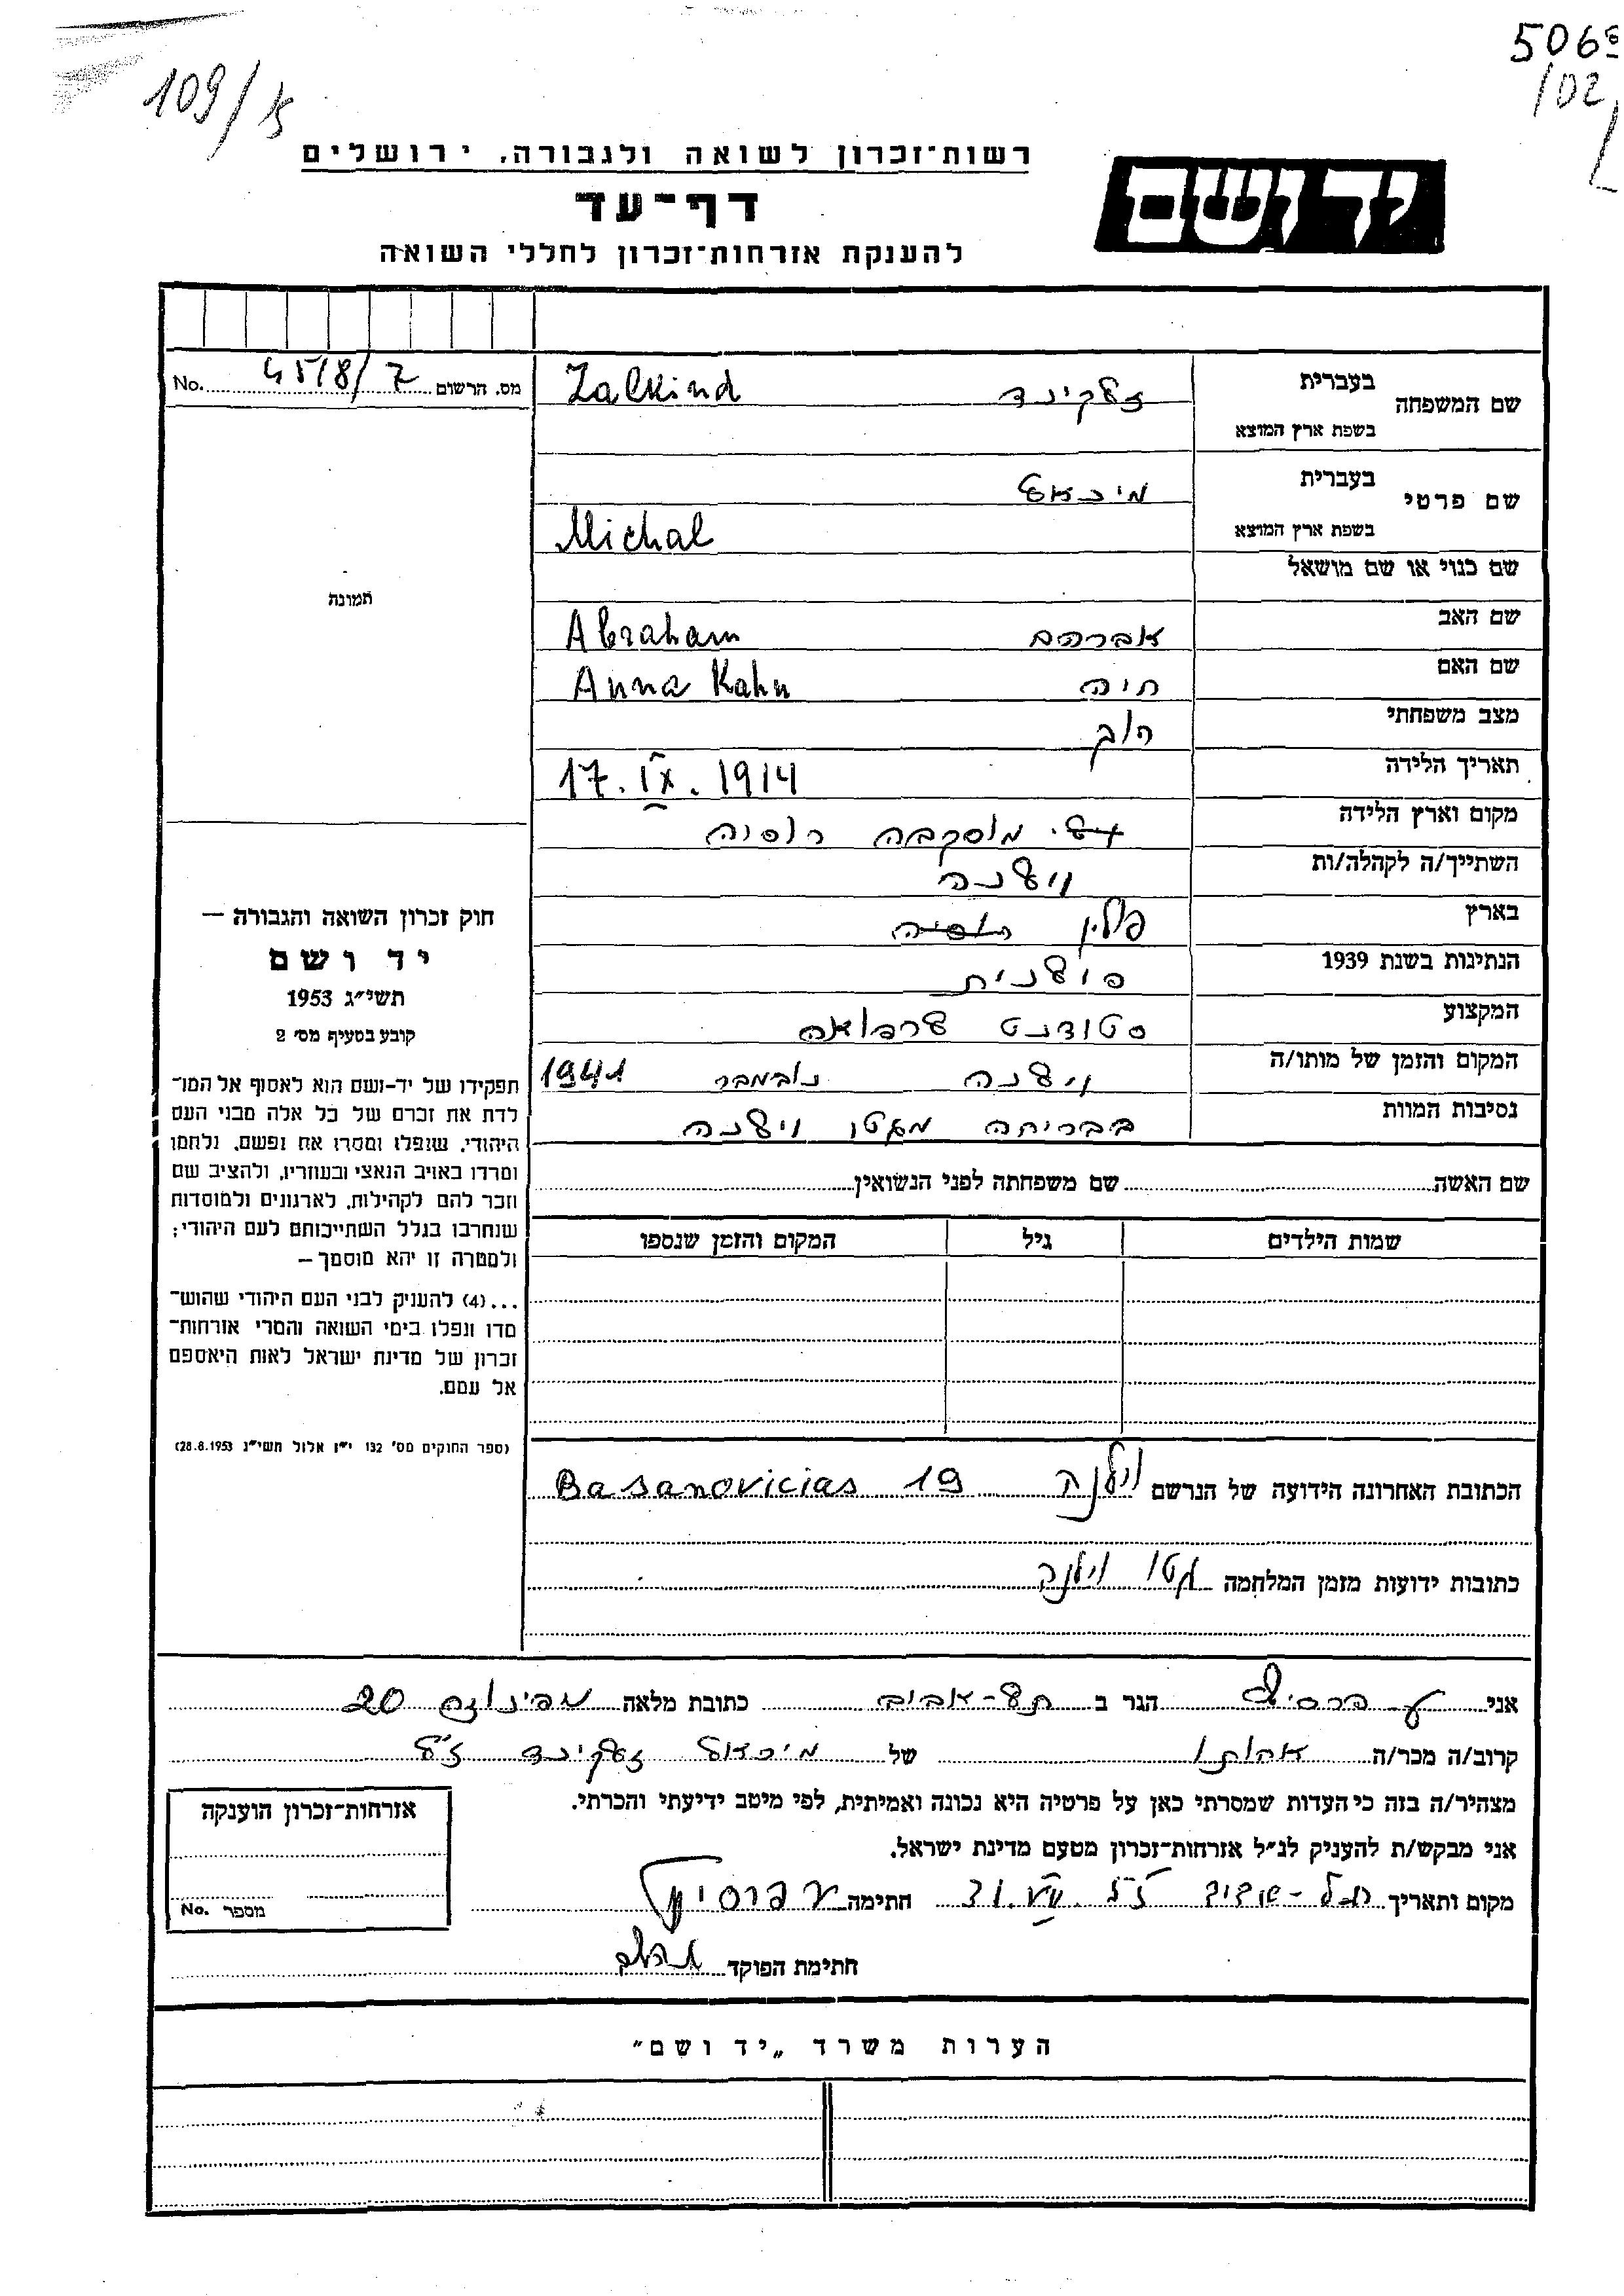 5068
/02
109/ איז
רשות־זכרון לשואה ולגבורה, ירושלים
יד ושם
דף־עד
להענקת אזרחות־זכרון לחללי השואה
מס. הרשום 4518/7 No.
שם המשפחה בעברית זלקינד Zalkind
בשפת ארץ המוצא
שם פרטי בעברית מיכאל
בשפת ארץ המוצא Michal
שם כנוי או שם מושאל
שם האב אברהם Abraham
שם האם חיה Anna Kahn
מצב משפחתי רווק
תאריך הלידה 17.IX.1914
מקום וארץ הלידה מוסקבה רוסיה
השתייך/ה לקהלה/ות וילנה
בארץ רוסיה פולין
הנתינות בשנת 1939 פולנית
המקצוע סטודנט לרפואה
המקום והזמן של מותו/ה וילנה נובמבר 1941
נסיבות המוות בבריחה מגטו וילנה
תמונה
חוק זכרון השואה והגבורה —
יד ושם
תשי״ג 1953
קובע בסעיף מס׳ 2
תפקידו של יד־ושם הוא לאסוף אל המו־
לדת את זכרם של כל אלה מבני העם
היהודי, שנפלו ומסרו את נפשם, נלחמו
ומרדו באויב הנאצי ובעוזריו, ולהציב שם
וזכר להם לקהילות, לארגונים ולמוסדות
שנחרבו בגלל השתייכותם לעם היהודי;
ולמטרה זו יהא מוסמך —
...(4) להעניק לבני העם היהודי שהוש־
מדו ונפלו בימי השואה והמרי אזרחות־
זכרון של מדינת ישראל לאות היאספם
אל עמם.
(ספר החוקים מס׳ 132 י״ז אלול תשי״ג 28.8.1953)
שם האשה שם משפחתה לפני הנשואין
שמות הילדים גיל המקום והזמן שנספו
הכתובת האחרונה הידועה של הנרשם וילנה Basanovicias 19
כתובות ידועות מזמן המלחמה גטו וילנה
אני הגר ב תל-אביב כתובת מלאה 20
קרוב/ה מכר/ה אחותו של מיכאל זלקינד ז״ל
מצהיר/ה בזה כי העדות שמסרתי כאן על פרטיה היא נכונה ואמיתית, לפי מיטב ידיעתי והכרתי.
אני מבקש/ת להעניק לנ״ל אזרחות־זכרון מטעם מדינת ישראל.
מקום ותאריך תל-אביב חתימה
חתימת הפוקד
אזרחות־זכרון הוענקה
מספר No.
הערות משרד „יד ושם״